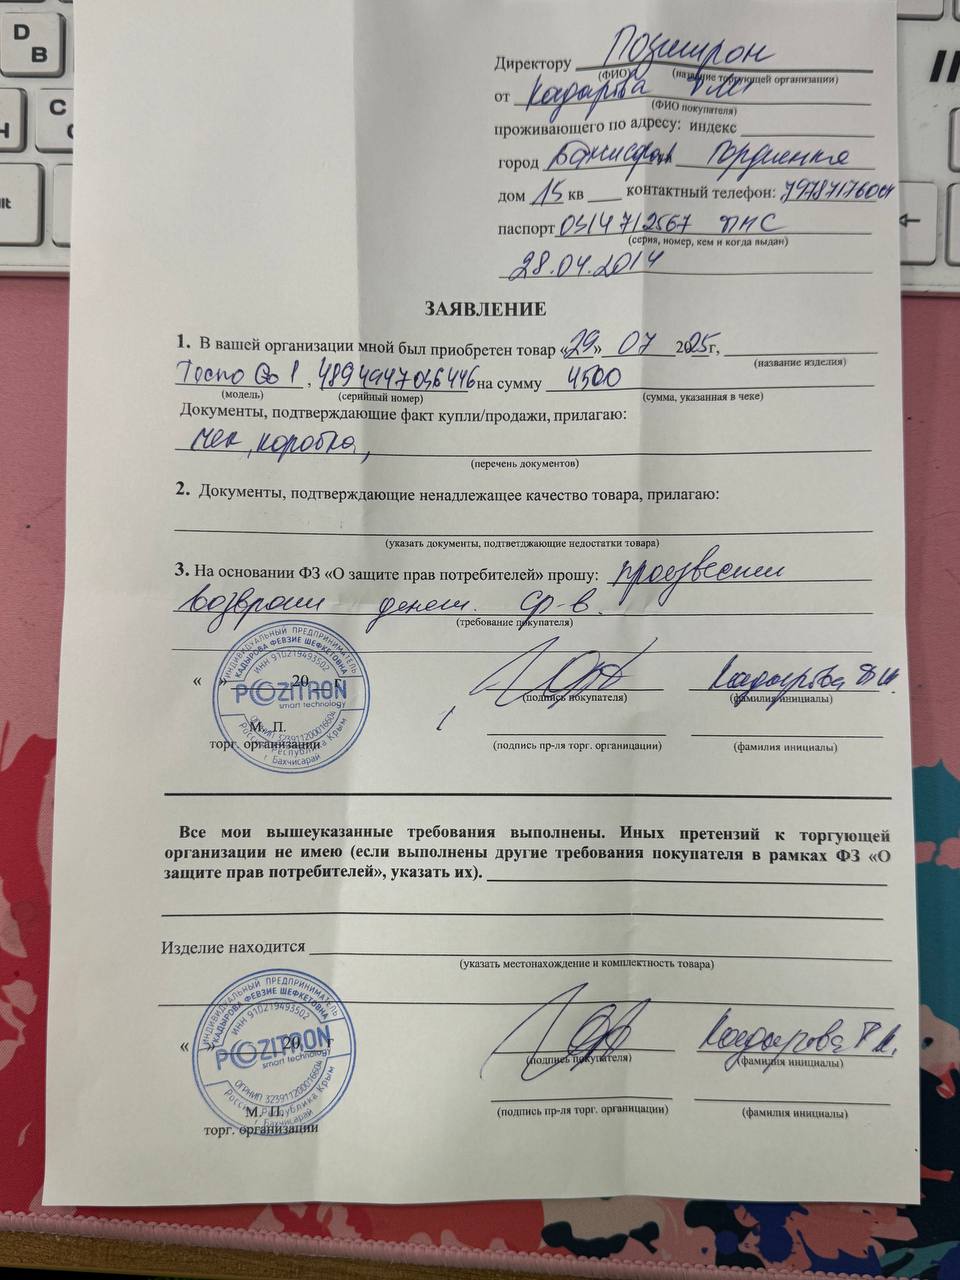 D
B
Директору Позитрон
(ФИО) (название торгующей организации)
от Кадырова
(ФИО покупателя)
проживающего по адресу: индекс
город
дом 15 кв контактный телефон:
паспорт
(серия, номер, кем и когда выдан)
28.04.2014
ЗАЯВЛЕНИЕ
1. В вашей организации мной был приобретен товар «29» 07 2025г,
(название изделия)
Tecno Go 1, 4894947046446 на сумму 4500
(модель) (серийный номер) (сумма, указанная в чеке)
Документы, подтверждающие факт купли/продажи, прилагаю:
чек, коробка,
(перечень документов)
2. Документы, подтверждающие ненадлежащее качество товара, прилагаю:
(указать документы, подтветджающие недостатки товара)
3. На основании ФЗ «О защите прав потребителей» прошу: произвести
возврат денеж. ср-в.
(требование покупателя)
ИНДИВИДУАЛЬНЫЙ ПРЕДПРИНИМАТЕЛЬ
КАДЫРОВА ФЕВЗИЕ ШЕФКЕТОВНА
ИНН 910219493502
POZITRON
smart technology
ОГРНИП 323911200016604
Россия, Республика Крым
г. Бахчисарай
« » 20 г Кадырова
(подпись покупателя) (фамилия инициалы)
М. П.
торг. организации (подпись пр-ля торг. органицации) (фамилия инициалы)
Все мои вышеуказанные требования выполнены. Иных претензий к торгующей
организации не имею (если выполнены другие требования покупателя в рамках ФЗ «О
защите прав потребителей», указать их).
Изделие находится
(указать местонахождение и комплектность товара)
ИНДИВИДУАЛЬНЫЙ ПРЕДПРИНИМАТЕЛЬ
КАДЫРОВА ФЕВЗИЕ ШЕФКЕТОВНА
ИНН 910219493502
POZITRON
smart technology
ОГРНИП 323911200016604
Россия, Республика Крым
г. Бахчисарай
« » 20 г Кадырова
(подпись покупателя) (фамилия инициалы)
М. П.
торг. организации (подпись пр-ля торг. органицации) (фамилия инициалы)